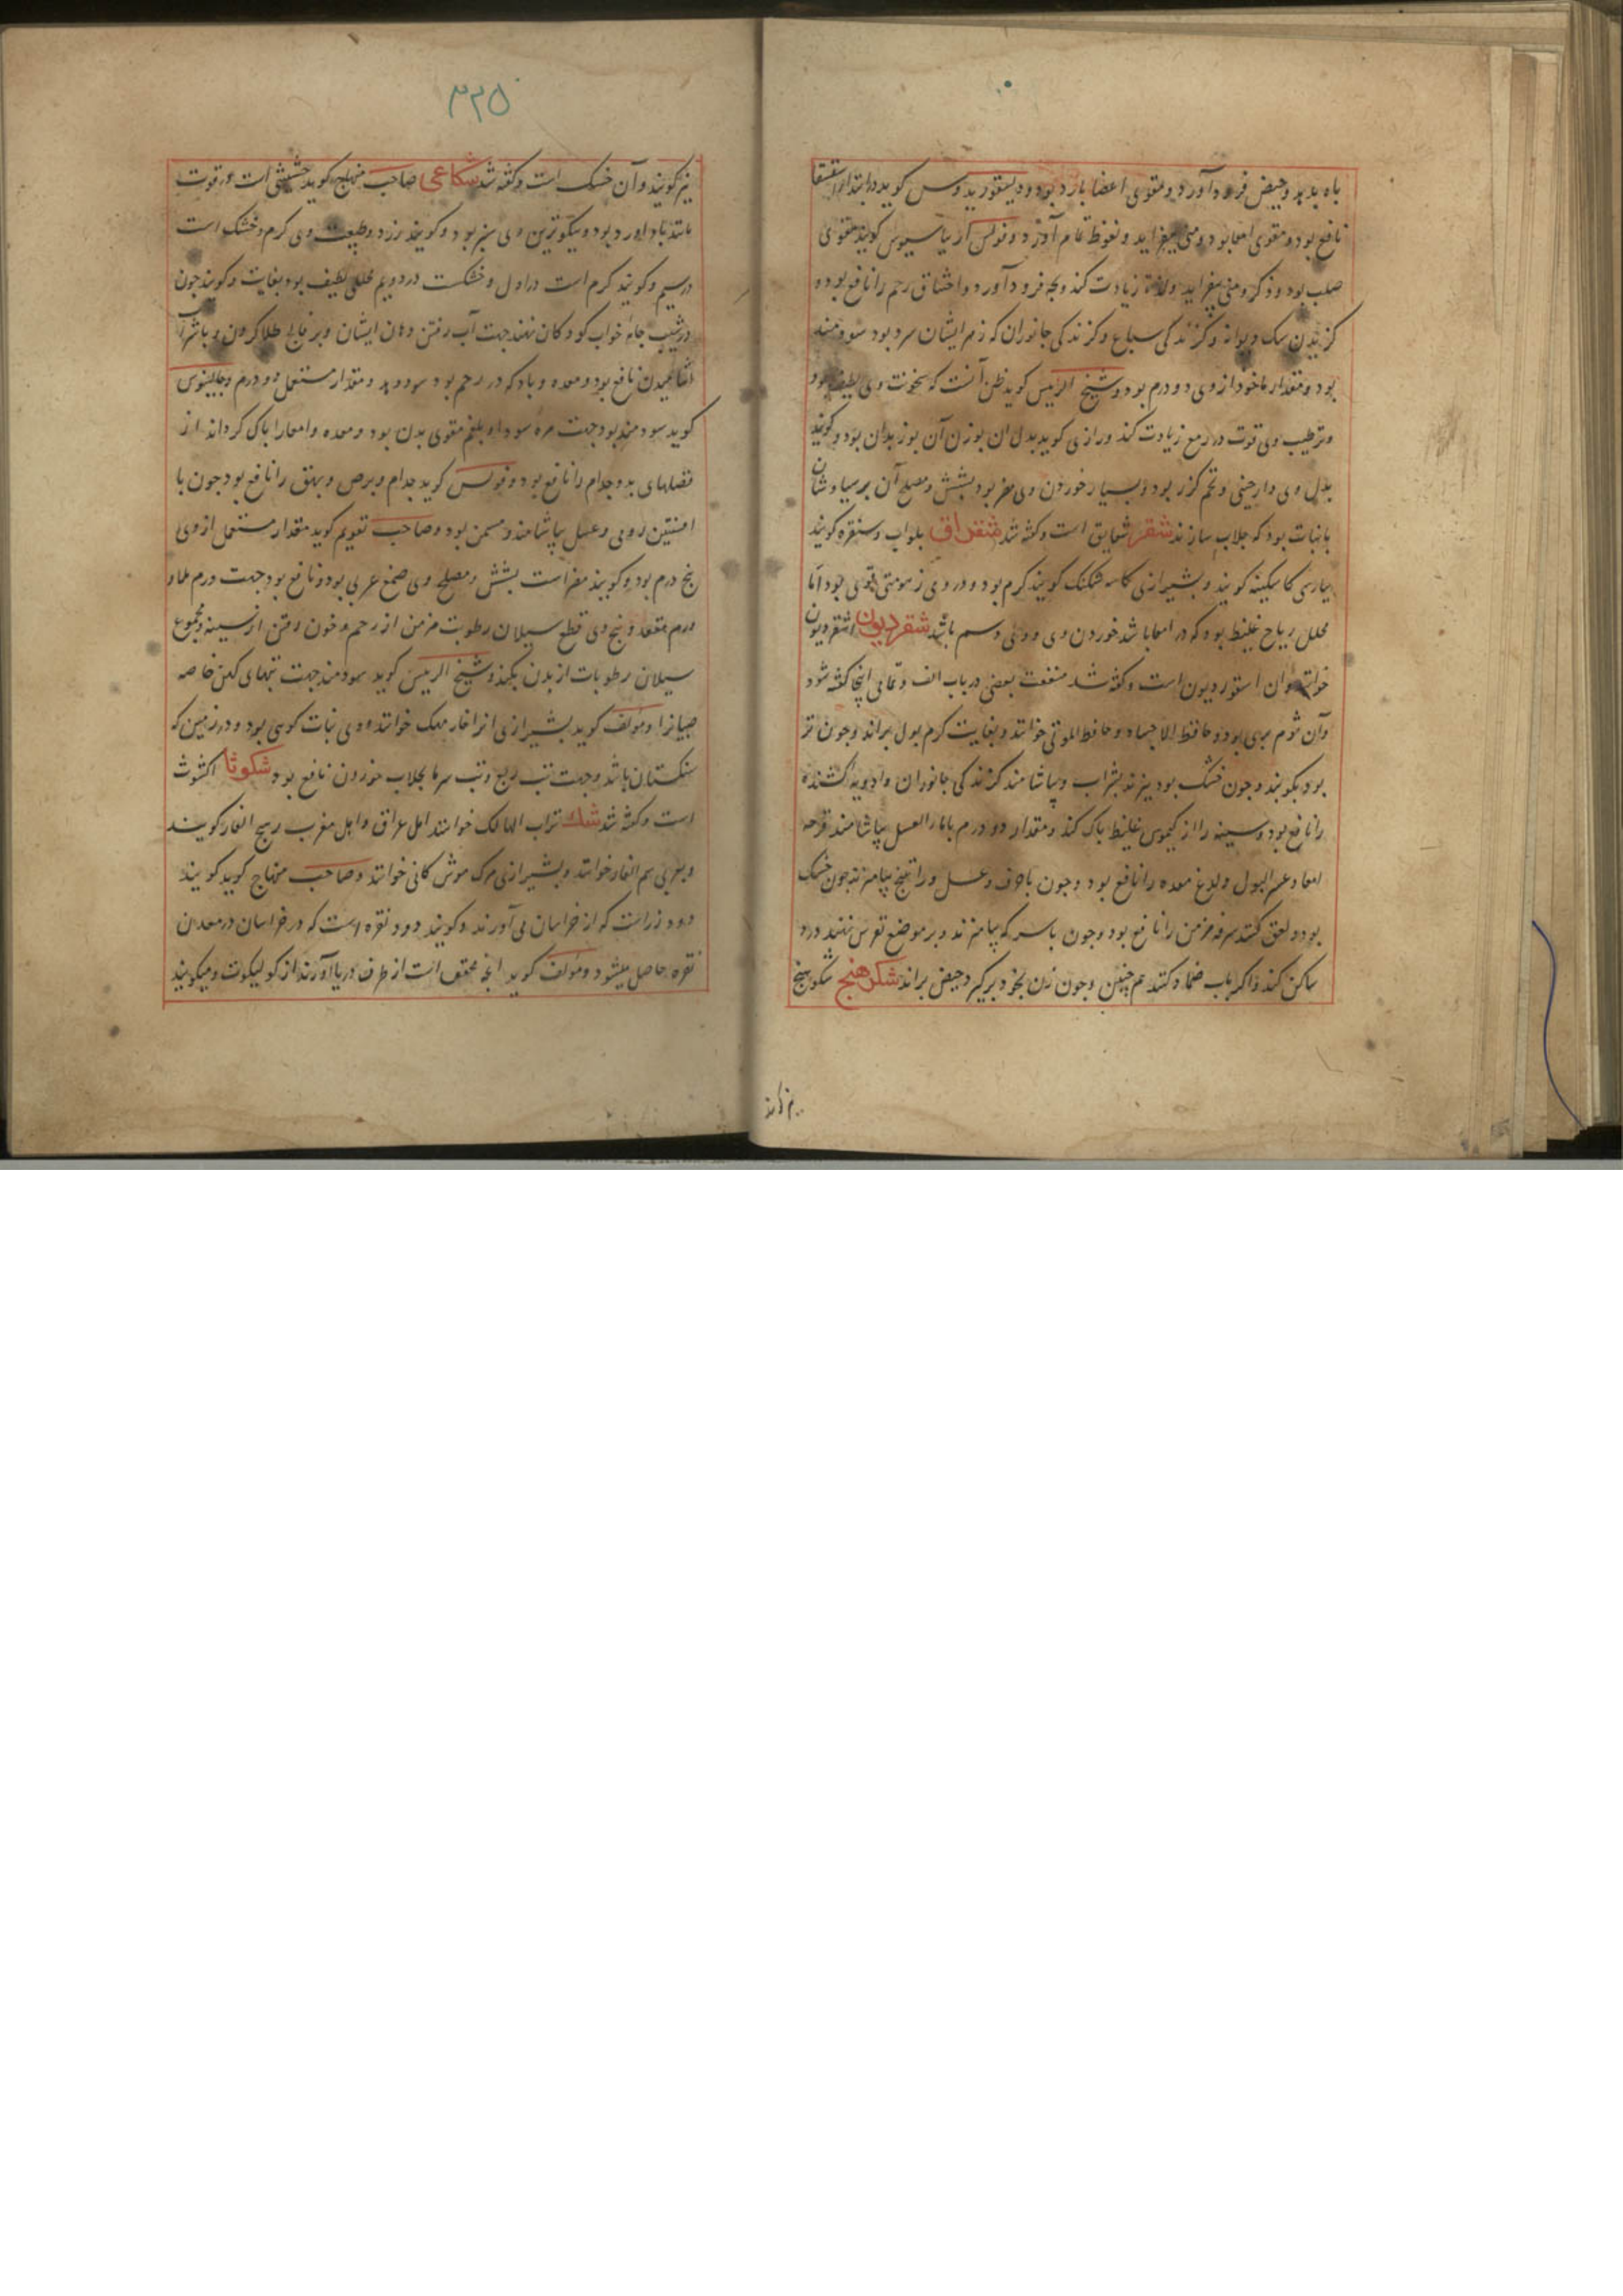 باه بدید وحیض فرود آورد ومقوی اعضا بارد بود ودیسقوریدوس کوید در ابتداء استسقا
نافع بود ومقوی امعا بود ومنی بیفزاید ونعوظ تمام آورد وفولس کوید مقوی
صلب بود وذکر ومنی بیفزاید زیادت کند وبچه فرود آورد واختناق رحم را نافع بود و
کزیدن سک دیوانه وکزندکی سباع وکزندکی جانوران که زهر ایشان سرد بود سودمند
بود ومقدار ماخوذ از وی دو درم بود وشیخ الرئیس کوید ظن آنست که سخونت وی لطیف بود
وترطیب وی قوت در زیادت کند ورازی کوید بدل آن بوزن آن بوزیدان بود وکویند
بدل وی دارچینی وتخم کزر بود وبسیار خوردن وی مضر بود بشش ومصلح آن برسیاوشان
با نبات بود که جلاب سازند شقر شقایق است وکفته شد شقراق بلواب وسنقره کویند
بپارسی کاسکینه کویند وبشیرازی کاسه شکنک کویند کرم بود ودر وی زهومتی قوی بود اما
محلل ریاح غلیظ بود که در امعا باشد خوردن وی وسم باشد شقردیون اشقردیون
خوانند وآن اسقوردیون است وکفته شد منفعت بعضی در باب الف وتمامی اینجا کفته شود
وآن ثوم بری بود وحافظ الاجساد وحافظ الموتی خوانند وبغایت کرم بول براند وچون تر
بود بکوبند وچون خشک بود بپزند بشراب وبیاشامند کزندکی جانوران وادویه کشنده
را نافع بود وسینه را از کیموس غلیظ پاک کند ومقدار دو درم با ماء العسل بیاشامند قرحه
امعا وعسر البول ولذع معده را نافع بود وچون با حرف وعسل وراتینج بیامیزند چون خشک
بود ولعق کنند سرفه مزمن را نافع بود وچون با سرکه بیامیزند وبر موضع نقرس نهند درد
ساکن کند واکر باب ضماد کنند هم چنین وچون زن بخود برکیرد حیض براند شکرهنج شکوهنج
نیز کویند وآن خسک است وکفته شد شکاعی صاحب منهاج کوید حشیشی است در قوت
مانند باداورد بود ونیکوترین وی سبز بود وکویند زرد وطبیعت وی کرم وخشک است
در سیم وکویند کرم است در اول وخشکست در دویم محلل لطیف بود بغایت وکویند چون
در شیب جامه خواب کودکان نهند جهت آب رفتن دهان ایشان وبر فالج طلا کردن وبا شراب
آشامیدن نافع بود ومعده وباد که در رحم بود سود دهد ومقدار مستعمل دو درم وجالینوس
کوید سودمند بود جهت مره سودا وبلغم مقوی بدن بود ومعده وامعا را پاک کرداند از
فضلهای بد وجذام را نافع بود وفولس کوید جذام وبرص وبهق را نافع بود چون با
افسنتین رومی وعسل بیاشامند ومسمن بود وصاحب تقویم کوید مقدار مستعمل از وی
پنج درم بود وکویند مضر است بشش ومصلح وی صمغ عربی بود ونافع بود جهت ورم لهاة و
ورم مقعد وبیخ وی قطع سیلان رطوبت مزمن از رحم وخون رفتن از سینه ومجموع
سیلان رطوبات از بدن بکند وشیخ الرئیس کوید سودمند جهت تبهای کهن خاصه
صبیانرا ومؤلف کوید بشیرازی انرا خوانند ووی نبات کوهی بود ودر زمین که
سنکستان باشد وجهت تب ربع وتب سرما بجلاب خوردن نافع بود شکوثا اکشوث
است وکفته شد شک تراب الهالک خوانند اهل عراق واهل مغرب رهج الفار کویند
وبعربی سم الفار خوانند وبشیرازی مرک موش کانی خوانند وصاحب منهاج کوید کویند
دود زر است که از خراسان می آورند وکویند دود نقره است که در خراسان در معدن
نقره حاصل میشود ومؤلف کوید انچه محقق است از طرف دریا آورند از کولیکوت ومیکویند
۳۲۵